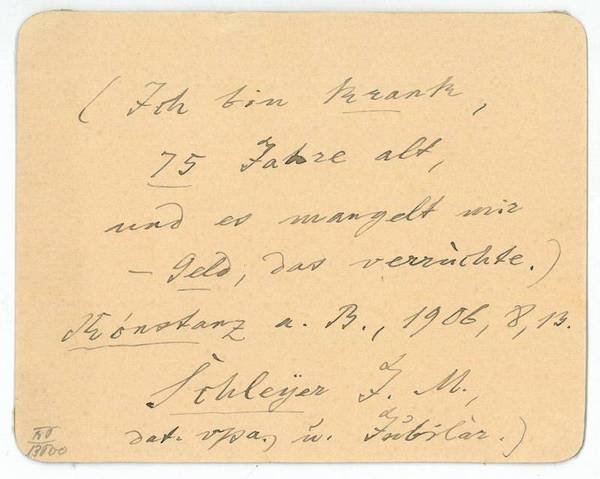 ( Ich bin krank,
75 Jahre alt,
und es mangelt mir
– Geld, das verrùchte.)
Kónstanz a. B., 1906, 8, 13.
Schleÿer J. M.,
dat. vpa, u. Jubilar.)